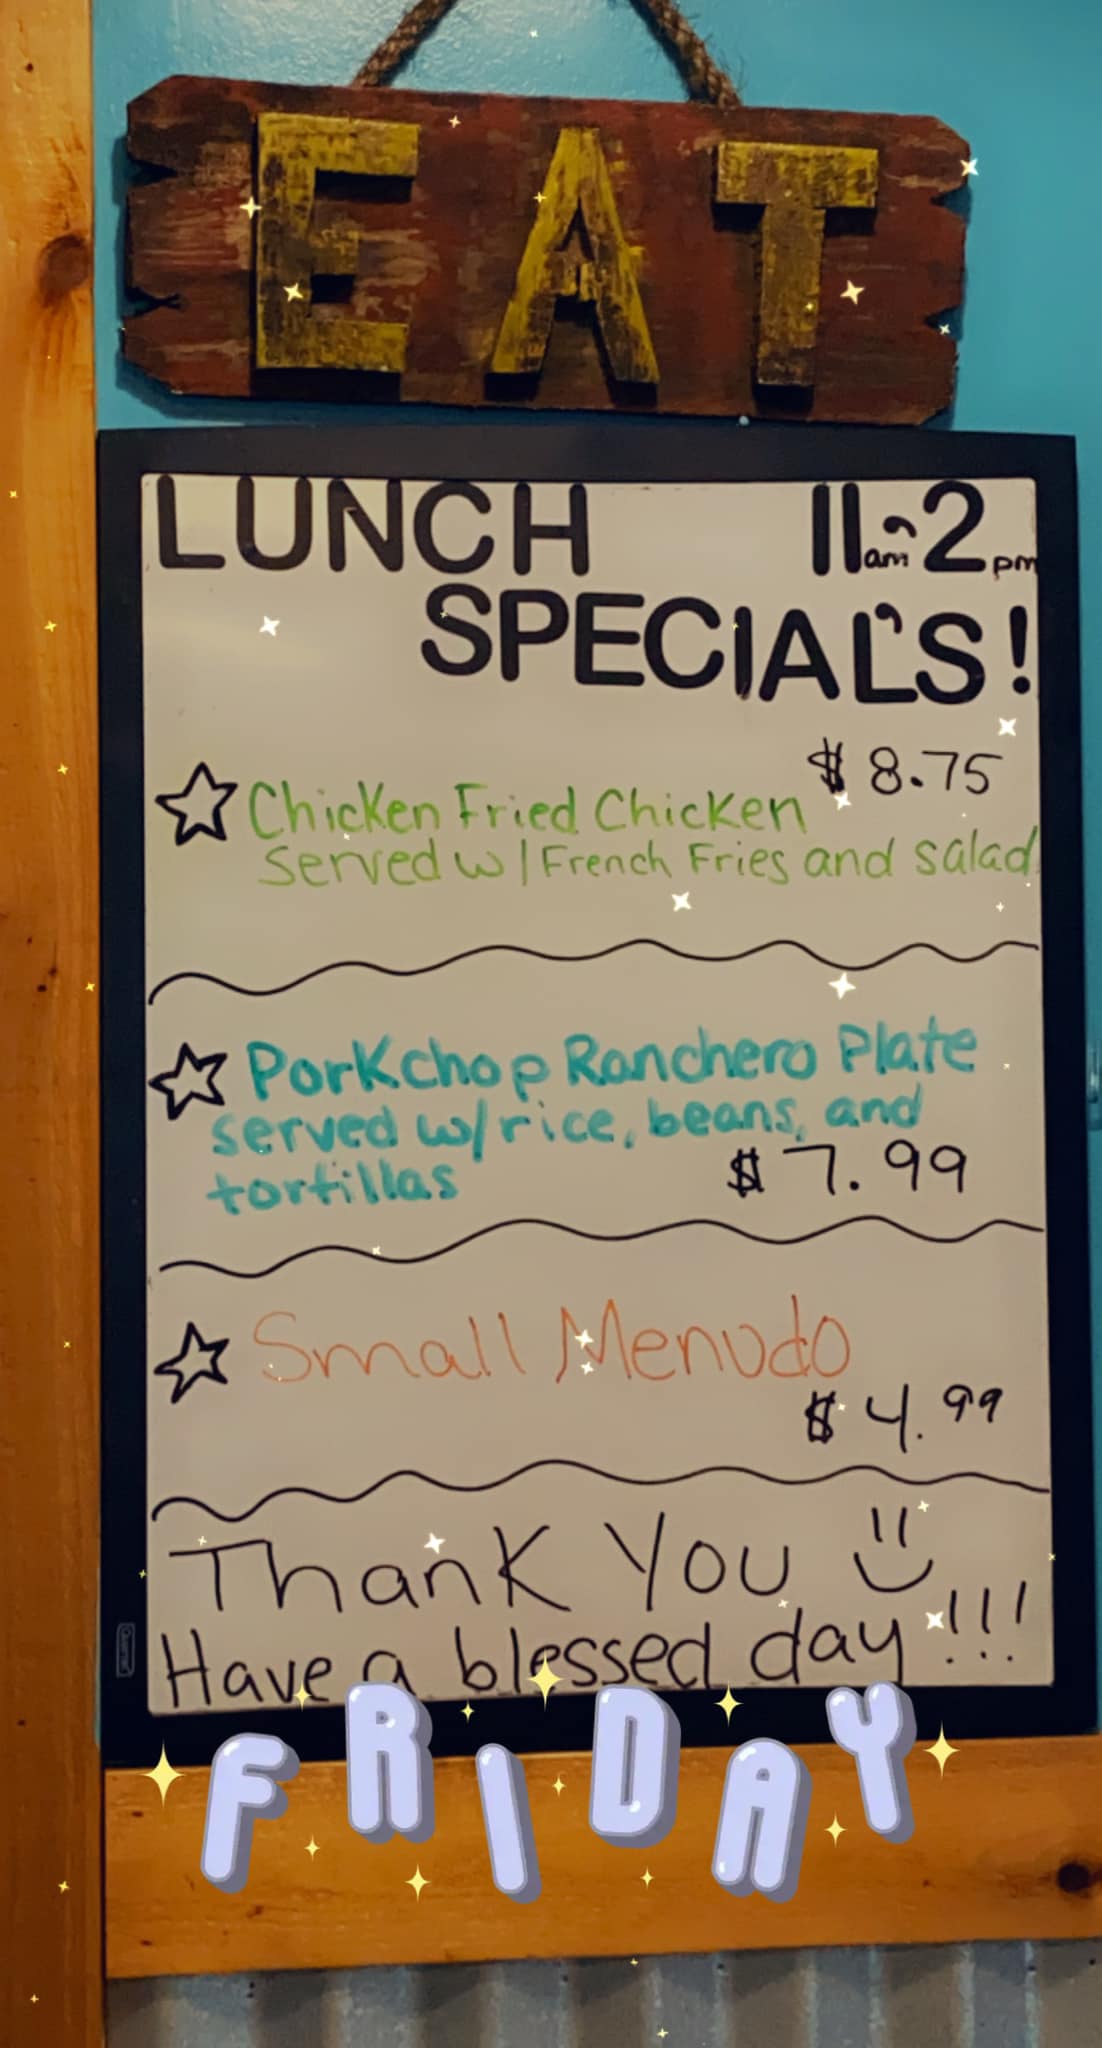 EAT
LUNCH 11am-2pm
SPECIALS!
$8.75
Chicken Fried Chicken
Served w/French Fries and salad
Porkchop Ranchero Plate
served w/rice, beans, and
tortillas $7.99
Small Menudo
$4.99
Thank You
Have a blessed day!!!
FRIDAY